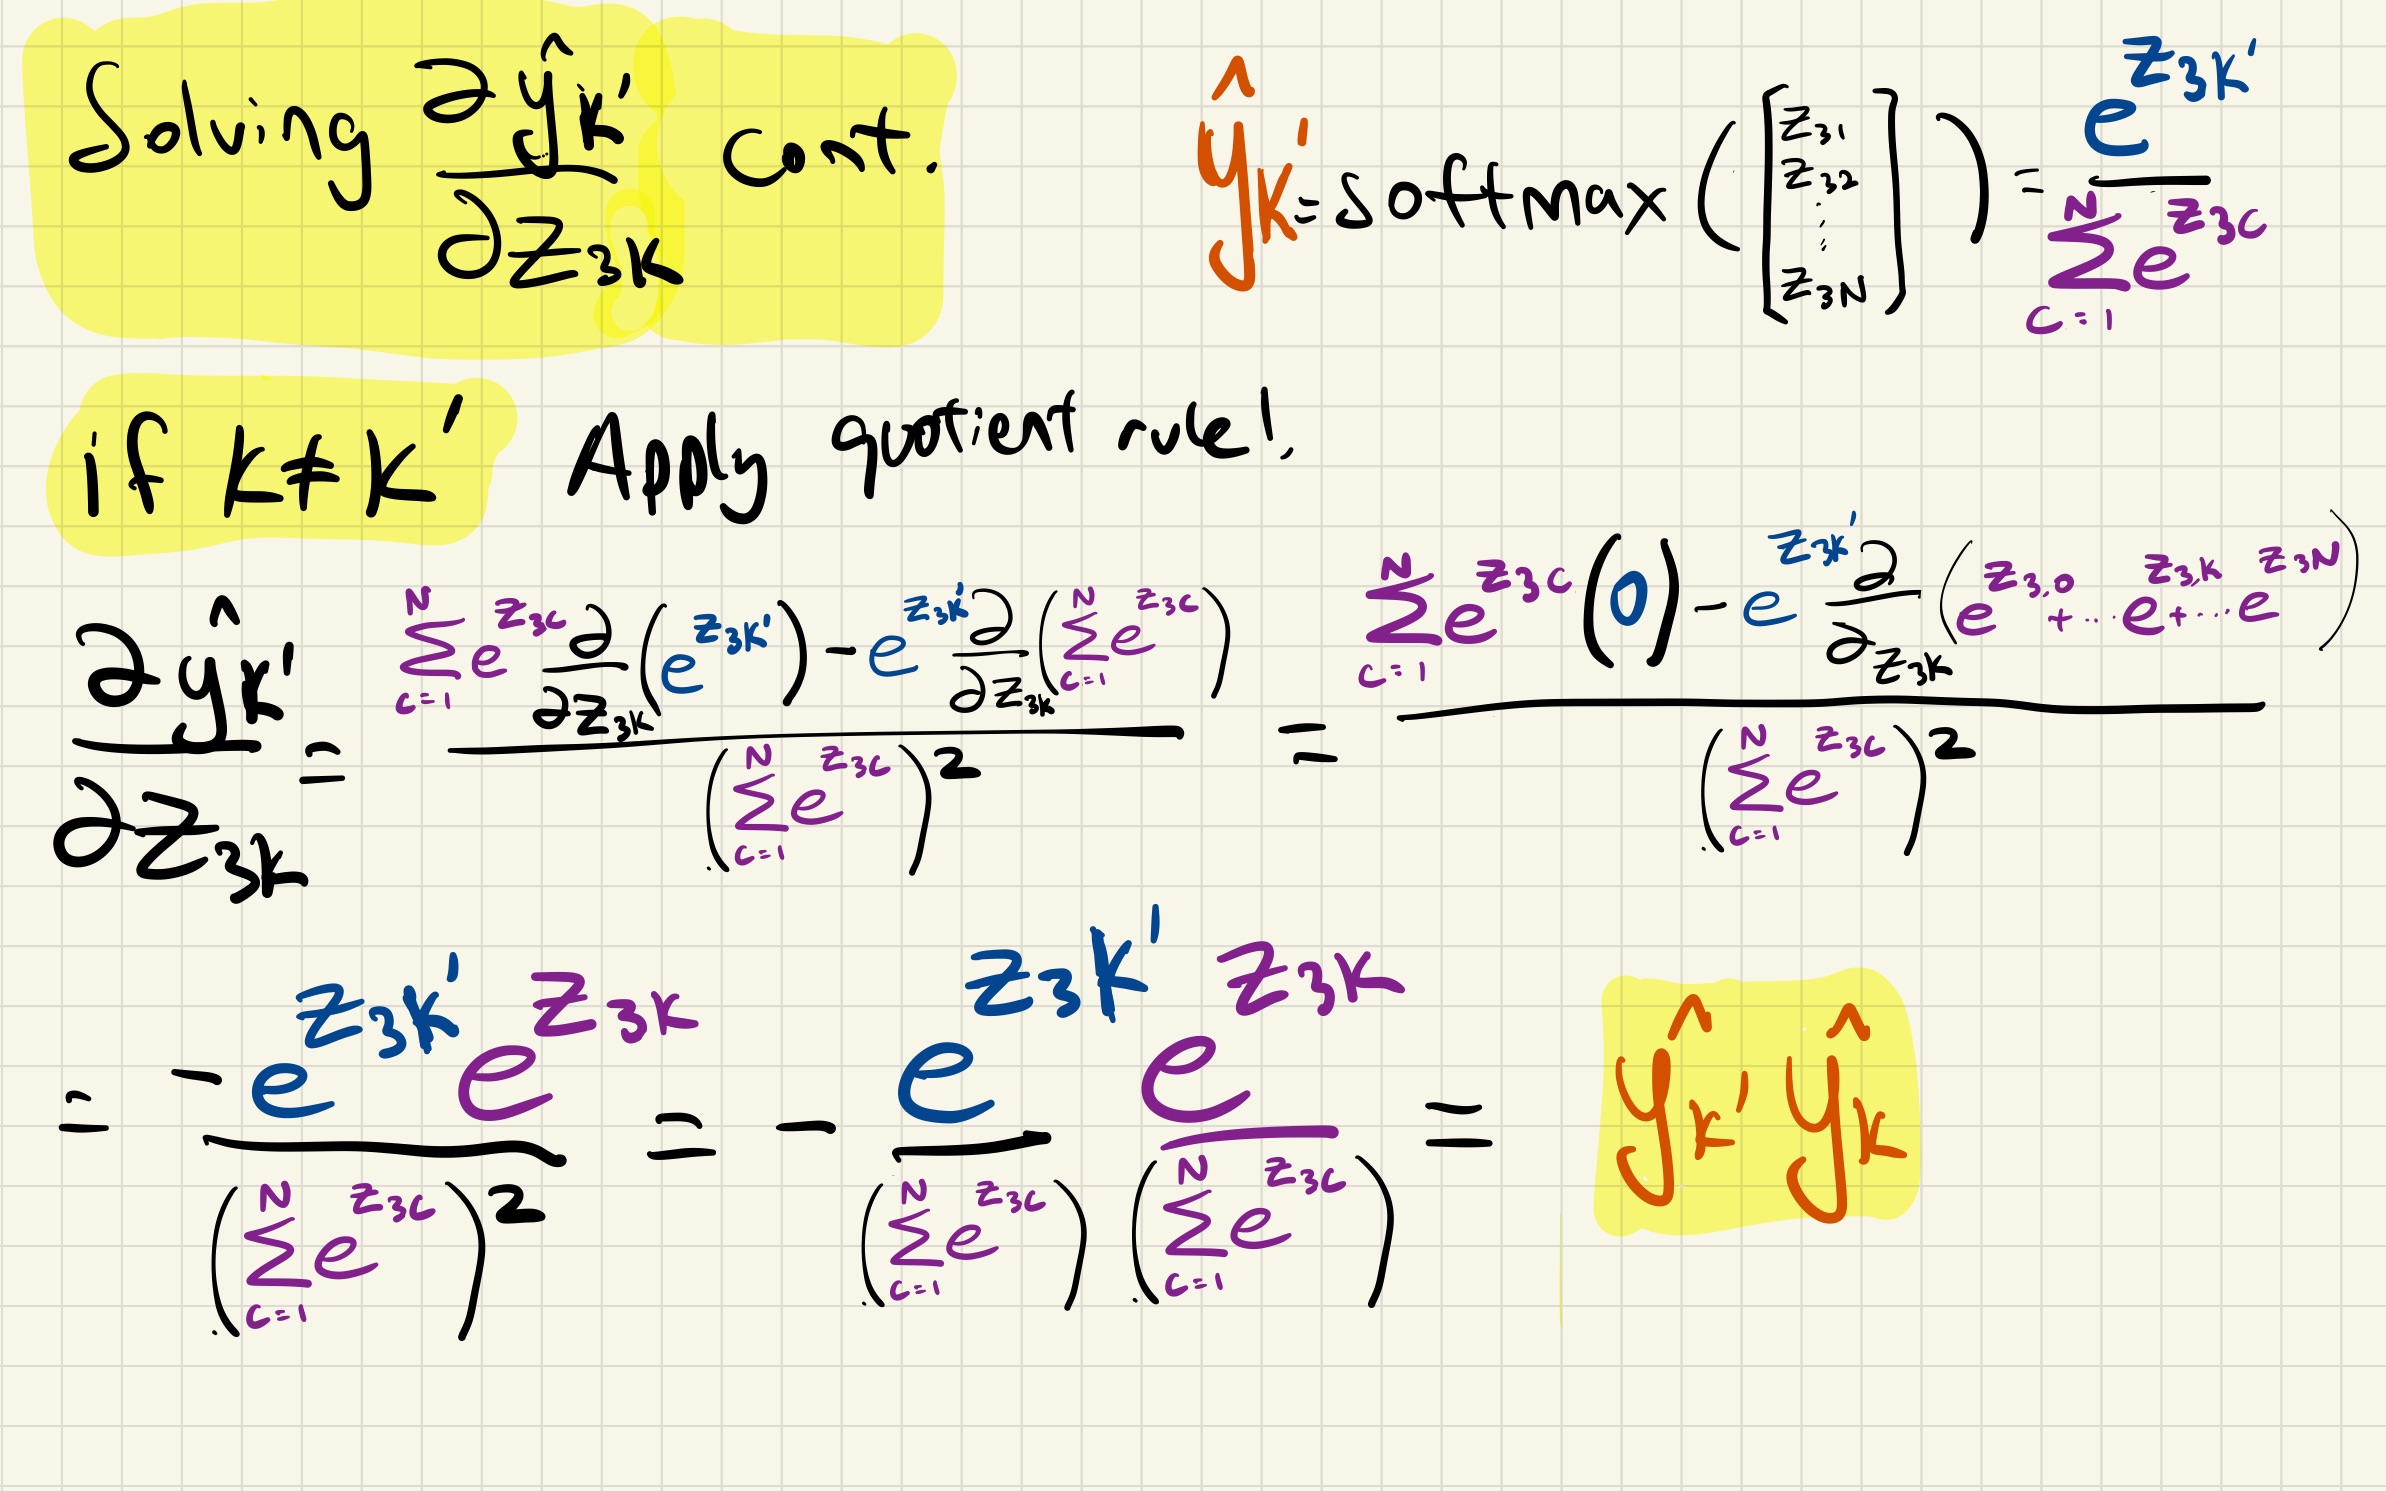 Solving ∂ŷₖ′/∂z₃ₖ cont.
ŷₖ′ = softmax([z₃₁ z₃₂ ⋮ z₃N]) = e^(z₃ₖ′) / Σ_(c=1)^N e^(z₃c)
if k ≠ k′ Apply quotient rule!
∂ŷₖ′/∂z₃ₖ = [Σ_(c=1)^N e^(z₃c) ∂/∂z₃ₖ (e^(z₃ₖ′)) − e^(z₃ₖ′) ∂/∂z₃ₖ (Σ_(c=1)^N e^(z₃c))] / (Σ_(c=1)^N e^(z₃c))² = [Σ_(c=1)^N e^(z₃c) (0) − e^(z₃ₖ′) ∂/∂z₃ₖ (e^(z₃,₀) + ... e^(z₃,ₖ) + ... e^(z₃N))] / (Σ_(c=1)^N e^(z₃c))²
= −e^(z₃ₖ′) e^(z₃ₖ) / (Σ_(c=1)^N e^(z₃c))² = − e^(z₃ₖ′) / (Σ_(c=1)^N e^(z₃c)) e^(z₃ₖ) / (Σ_(c=1)^N e^(z₃c)) = ŷₖ′ ŷₖ